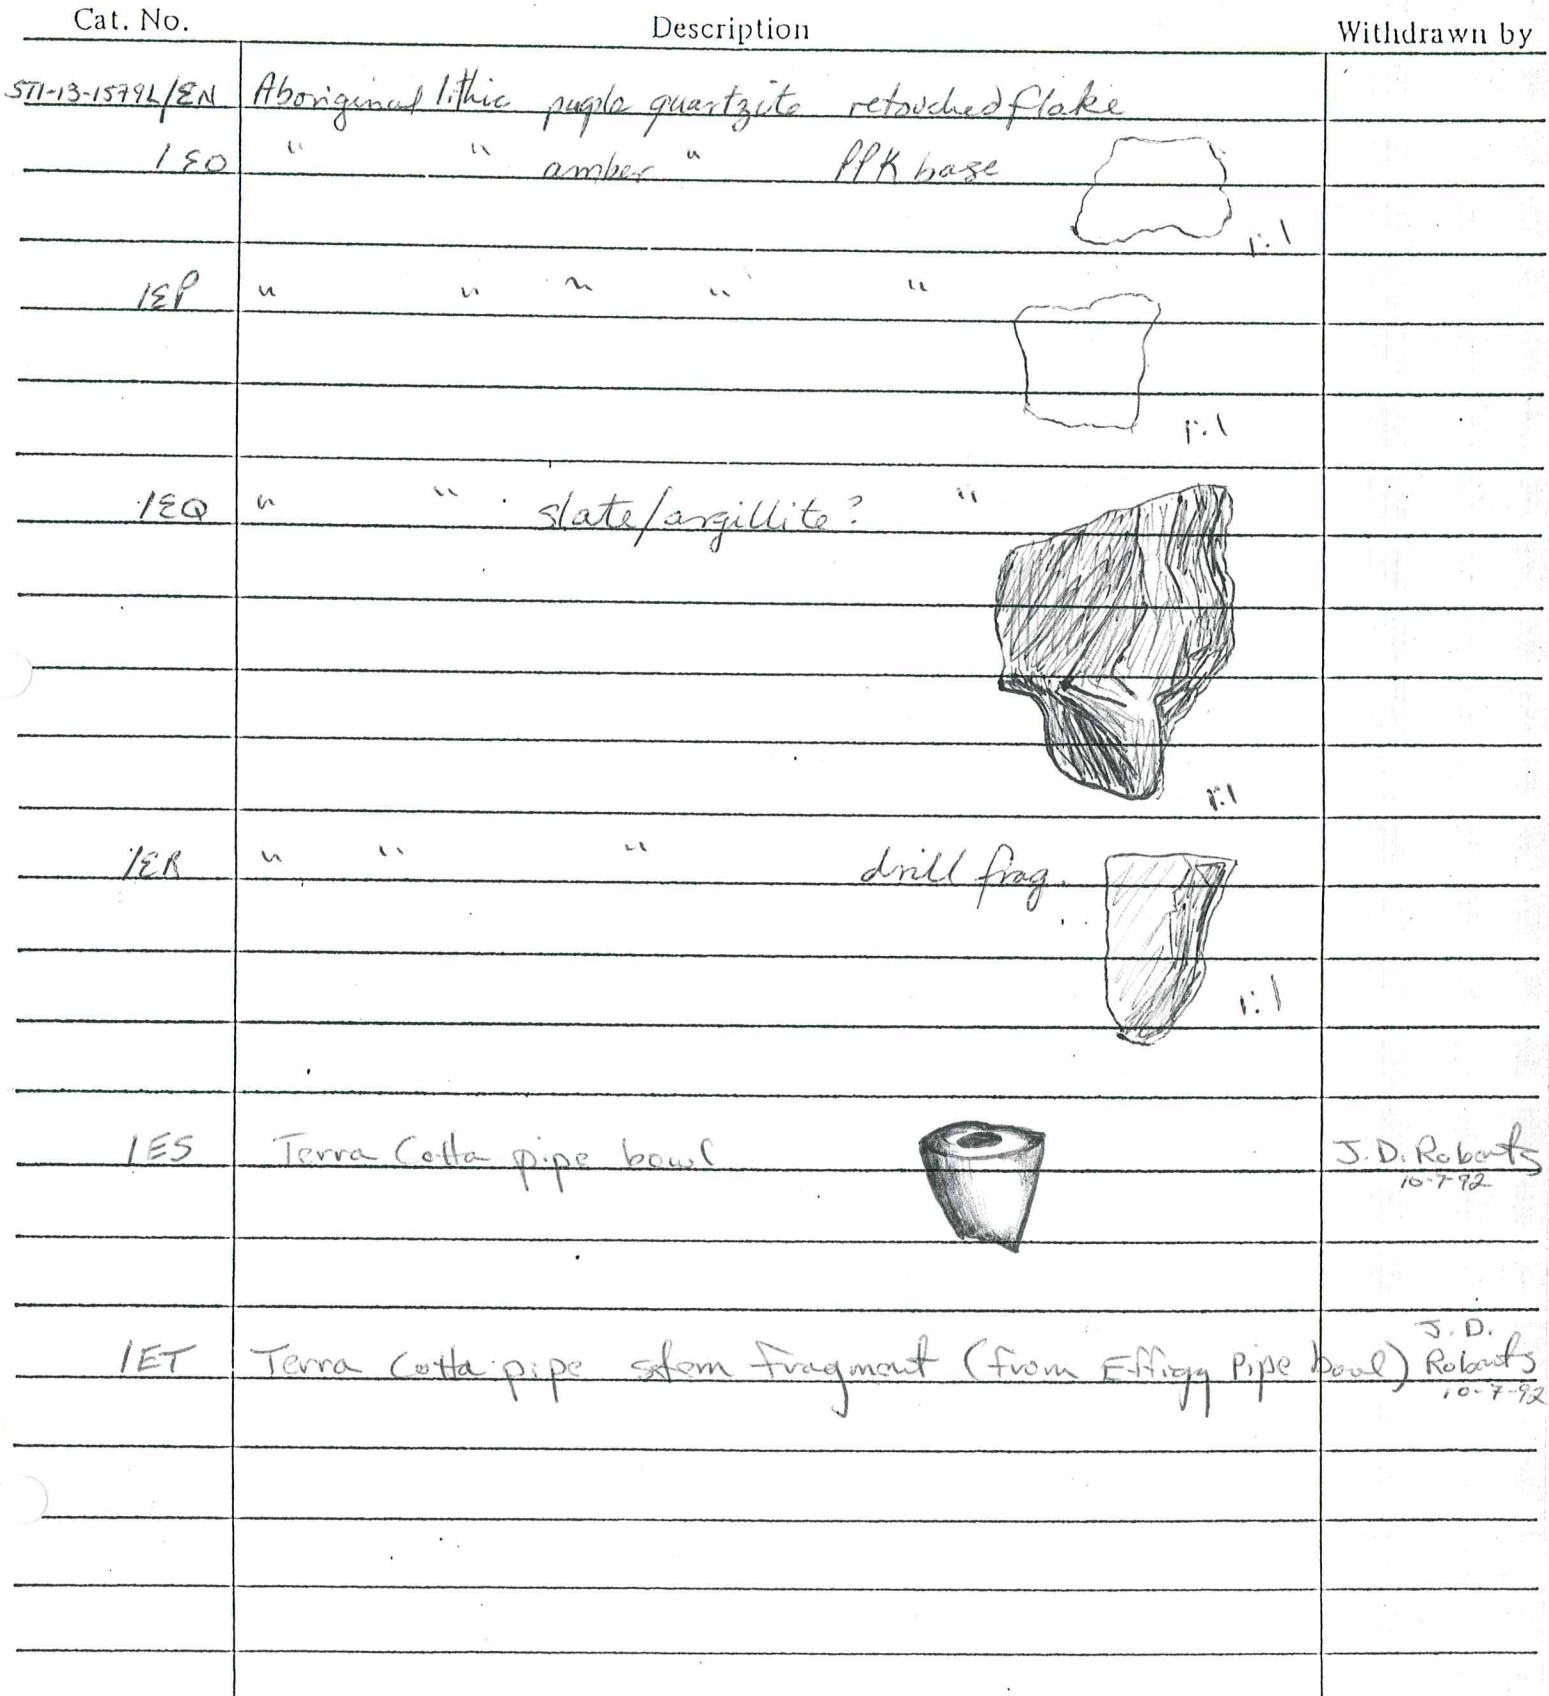 Cat. No. Description Withdrawn by
ST1-13-1579L/EN Aboriginal lithic purple quartzite retouched flake
/EO " " amber " PPK base
1:1
/EP " " " " "
1:1
/EQ " " slate/argillite? "
1:1
/ER " " " drill frag.
1:1
/ES Terra Cotta pipe bowl J.D. Roberts
10-7-92
/ET Terra Cotta pipe stem fragment (from Effigy Pipe bowl) J. D.
Roberts
10-7-92